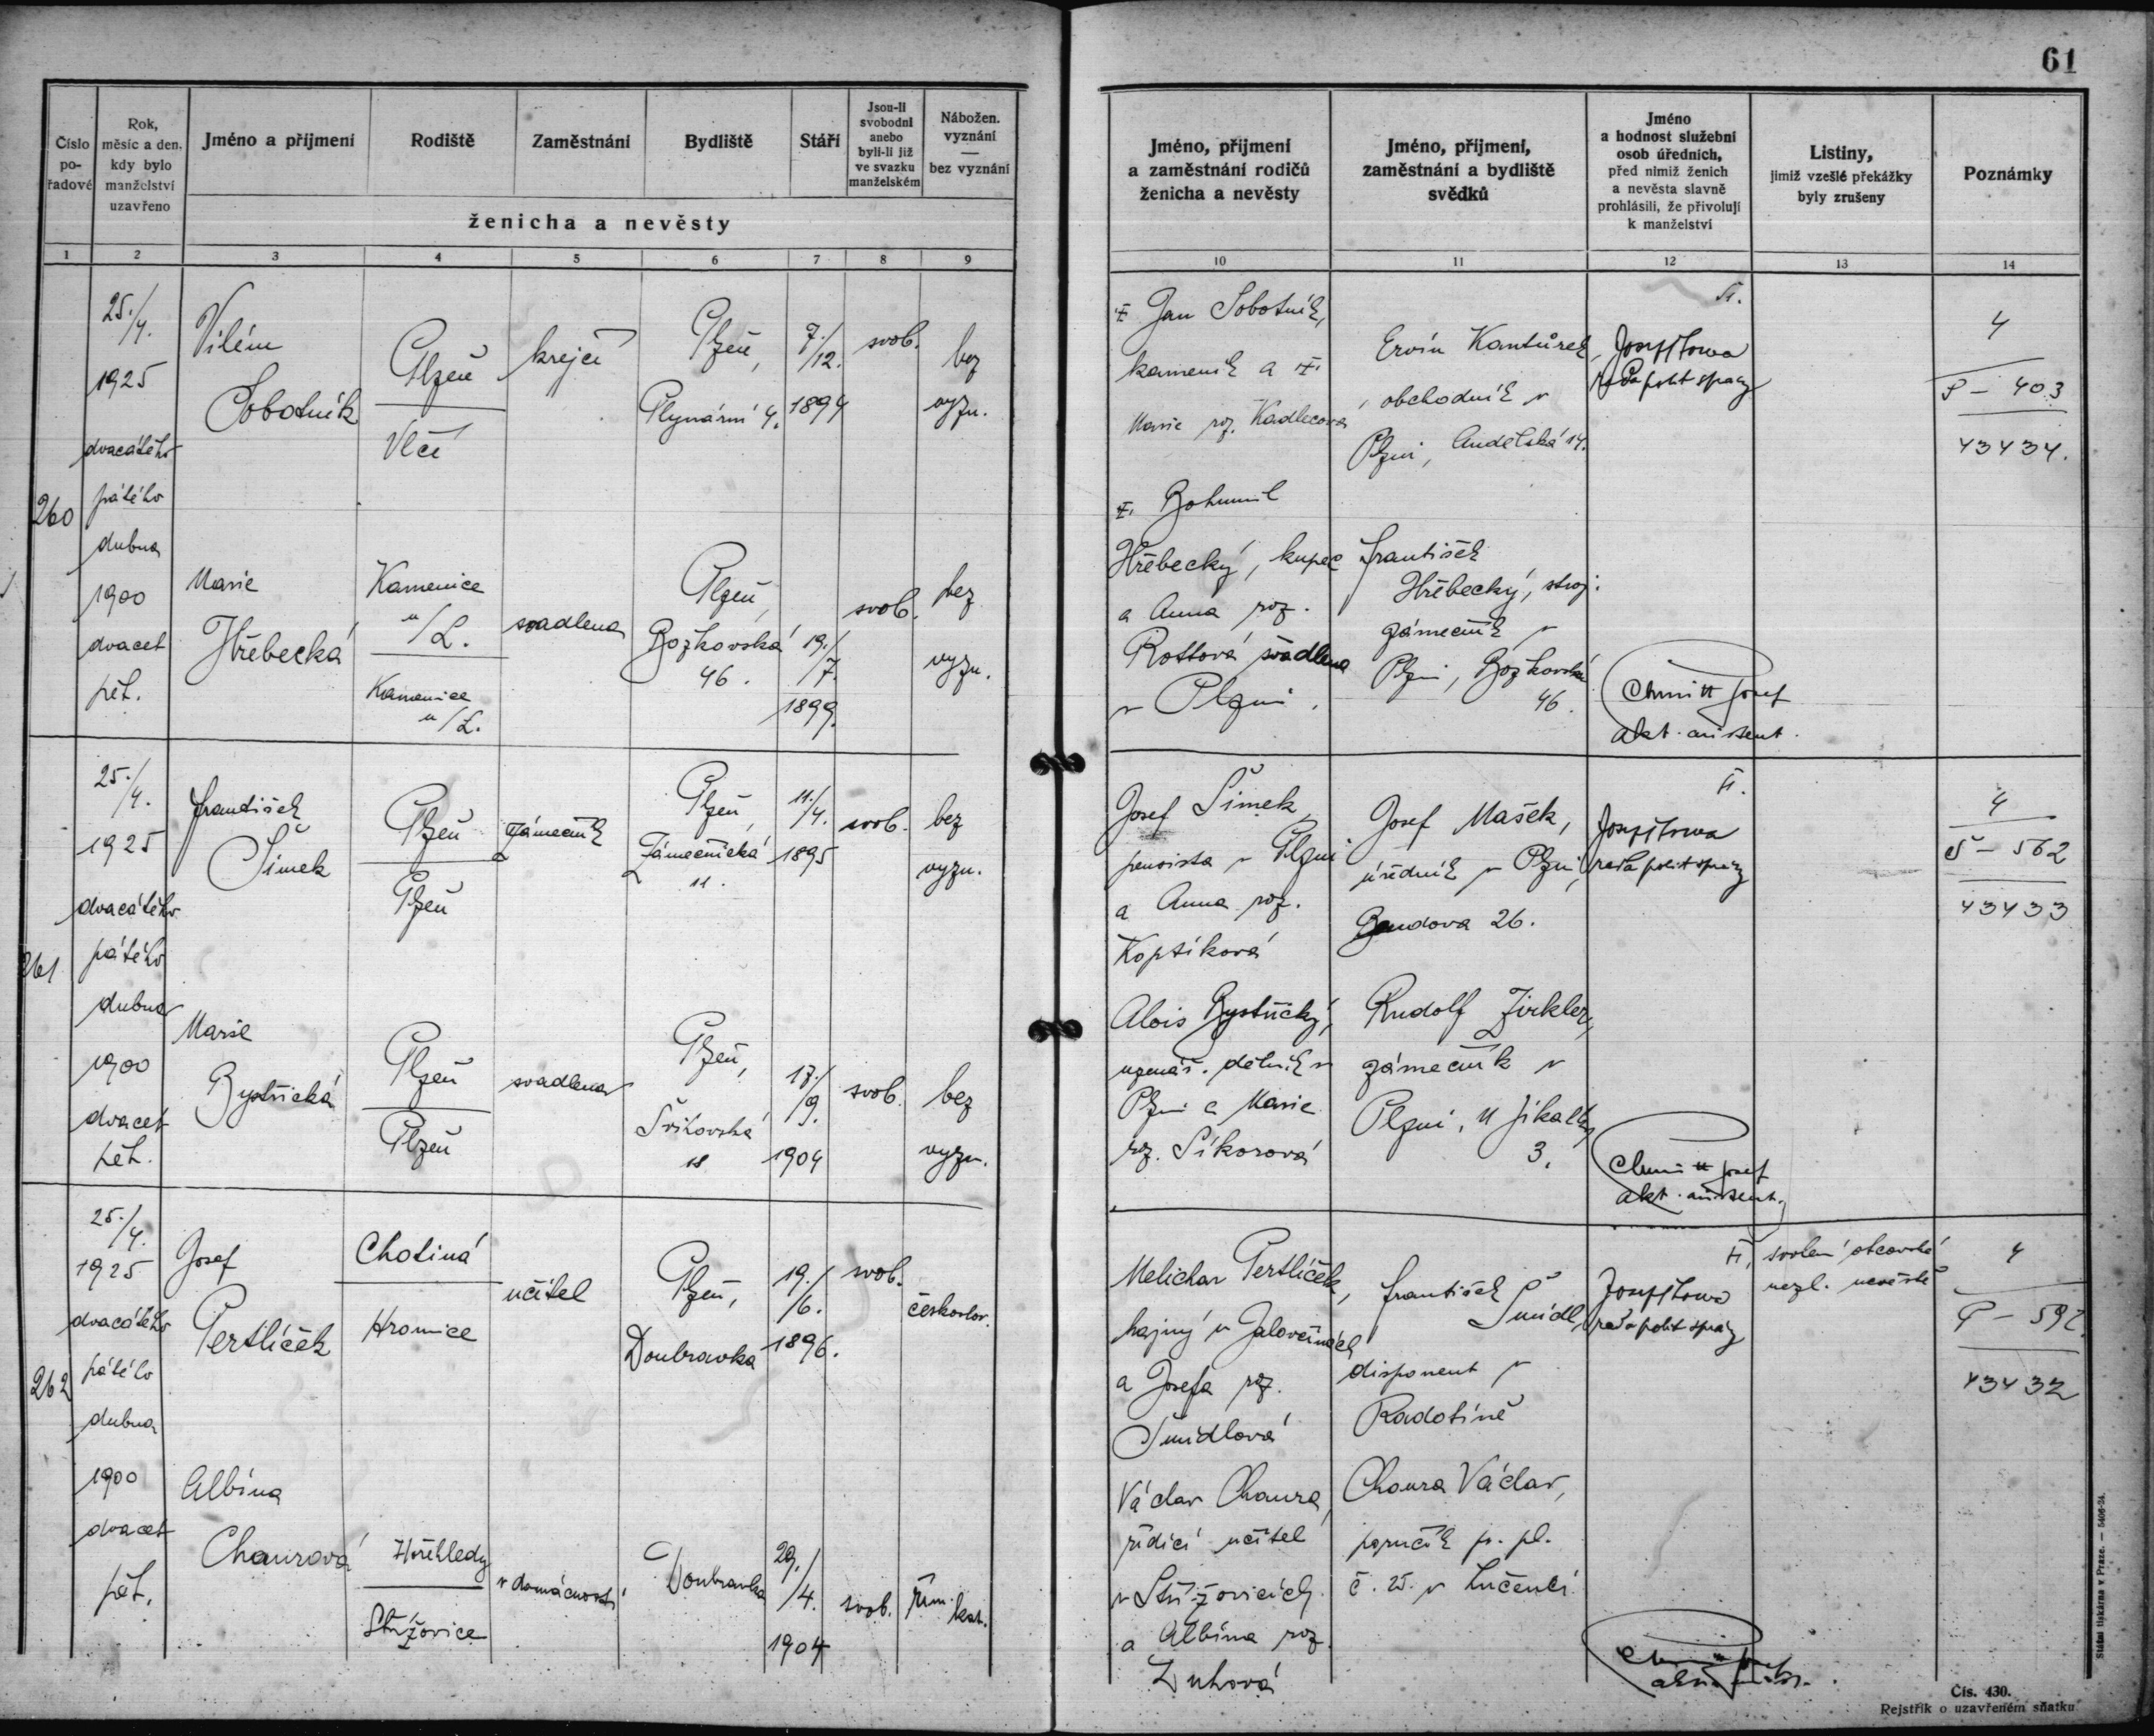 61
Číslo pořadové
Rok, měsíc a den, kdy bylo manželství uzavřeno
Jméno a příjmení
Rodiště
Zaměstnání
Bydliště
Stáří
Jsou-li svobodni anebo byli-li již ve svazku manželském
Nábožen. vyznání — bez vyznání
ženicha a nevěsty
Jméno, příjmení a zaměstnání rodičů ženicha a nevěsty
Jméno, příjmení, zaměstnání a bydliště svědků
Jméno a hodnost služební osob úředních, před nimiž ženich a nevěsta slavně prohlásili, že přivolují k manželství
Listiny, jimiž vzešlé překážky byly zrušeny
Poznámky
1 2 3 4 5 6 7 8 9 10 11 12 13 14
260
25./4.
1925
dvacátého
pátého
dubna
1900
dvacet
pět.
Vilém
Sobotník
Plzeň
Vlčí
krejčí
Plzeň,
Plynární 4.
7./12.
1894
svob.
bez
vyzn.
Jan Sobotník,
kameník a
Marie roz. Kadlecová
Ervín Kantůrek,
obchodník v
Plzni, Andělská 14.
rada polit správy
4
S – 403
43434.
Marie
Hřebecká
Kamenice
n/L.
Kamenice
n/L.
švadlena
Plzeň,
Božkovská
46.
19./7.
1899.
svob.
bez
vyzn.
Bohumil
Hřebecký, kupec
a Anna roz.
Rottová švadlena
v Plzni.
František
Hřebecký, stroj.
zámečník v
Plzni, Božkovská
46.
Chmitt Josef
akt. assistent.
261
25./4.
1925
dvacátého
pátého
dubna
1900
dvacet
pět.
František
Šimek
Plzeň
Plzeň
zámečník
Plzeň,
Zámečnická
11.
11./4.
1895
svob.
bez
vyzn.
Josef Šimek,
pensista v Plzni
a Anna roz.
Koptíková
Josef Mašek,
úředník v Plzni,
Bendova 26.
rada polit správy
4
Š – 562
43433
Marie
Bystřická
Plzeň
Plzeň
švadlena
Plzeň,
Švihovská
18.
17./9.
1904
svob.
bez
vyzn.
Alois Bystřický,
dělník v
Plzni a Marie
roz. Síkorová
Rudolf Zirkler,
zámečník v
Plzni, U Jikalky
3.
Chmitt Josef
akt. assistent.
262
25./4.
1925
dvacátého
pátého
dubna
1900
dvacet
pět.
Josef
Pertlíček
Chotiná
Hromice
učitel
Plzeň,
Doubravka
19./6.
1896.
svob.
českoslov.
Melichar Pertlíček,
hajný v Jalovčinách
a Josefa roz.
Šmídlová
František
Šmídl,
disponent v
Radotíně
rada polit správy
svolení otcovské
nezl. nevěstě
4
P – 592.
43432
Albína
Chourová
Hořehledy
Střížovice
v domácnosti
Doubravka
29./4.
1904
svob.
řím. kat.
Václav Choura,
řídící učitel
v Střížovicích
a Albína roz.
Duhová
Choura Václav,
poručík p. pl.
č. 25. v Lučenci
Státní tiskárna v Praze. — 5406-24.
Čís. 430.
Rejstřík o uzavřeném sňatku